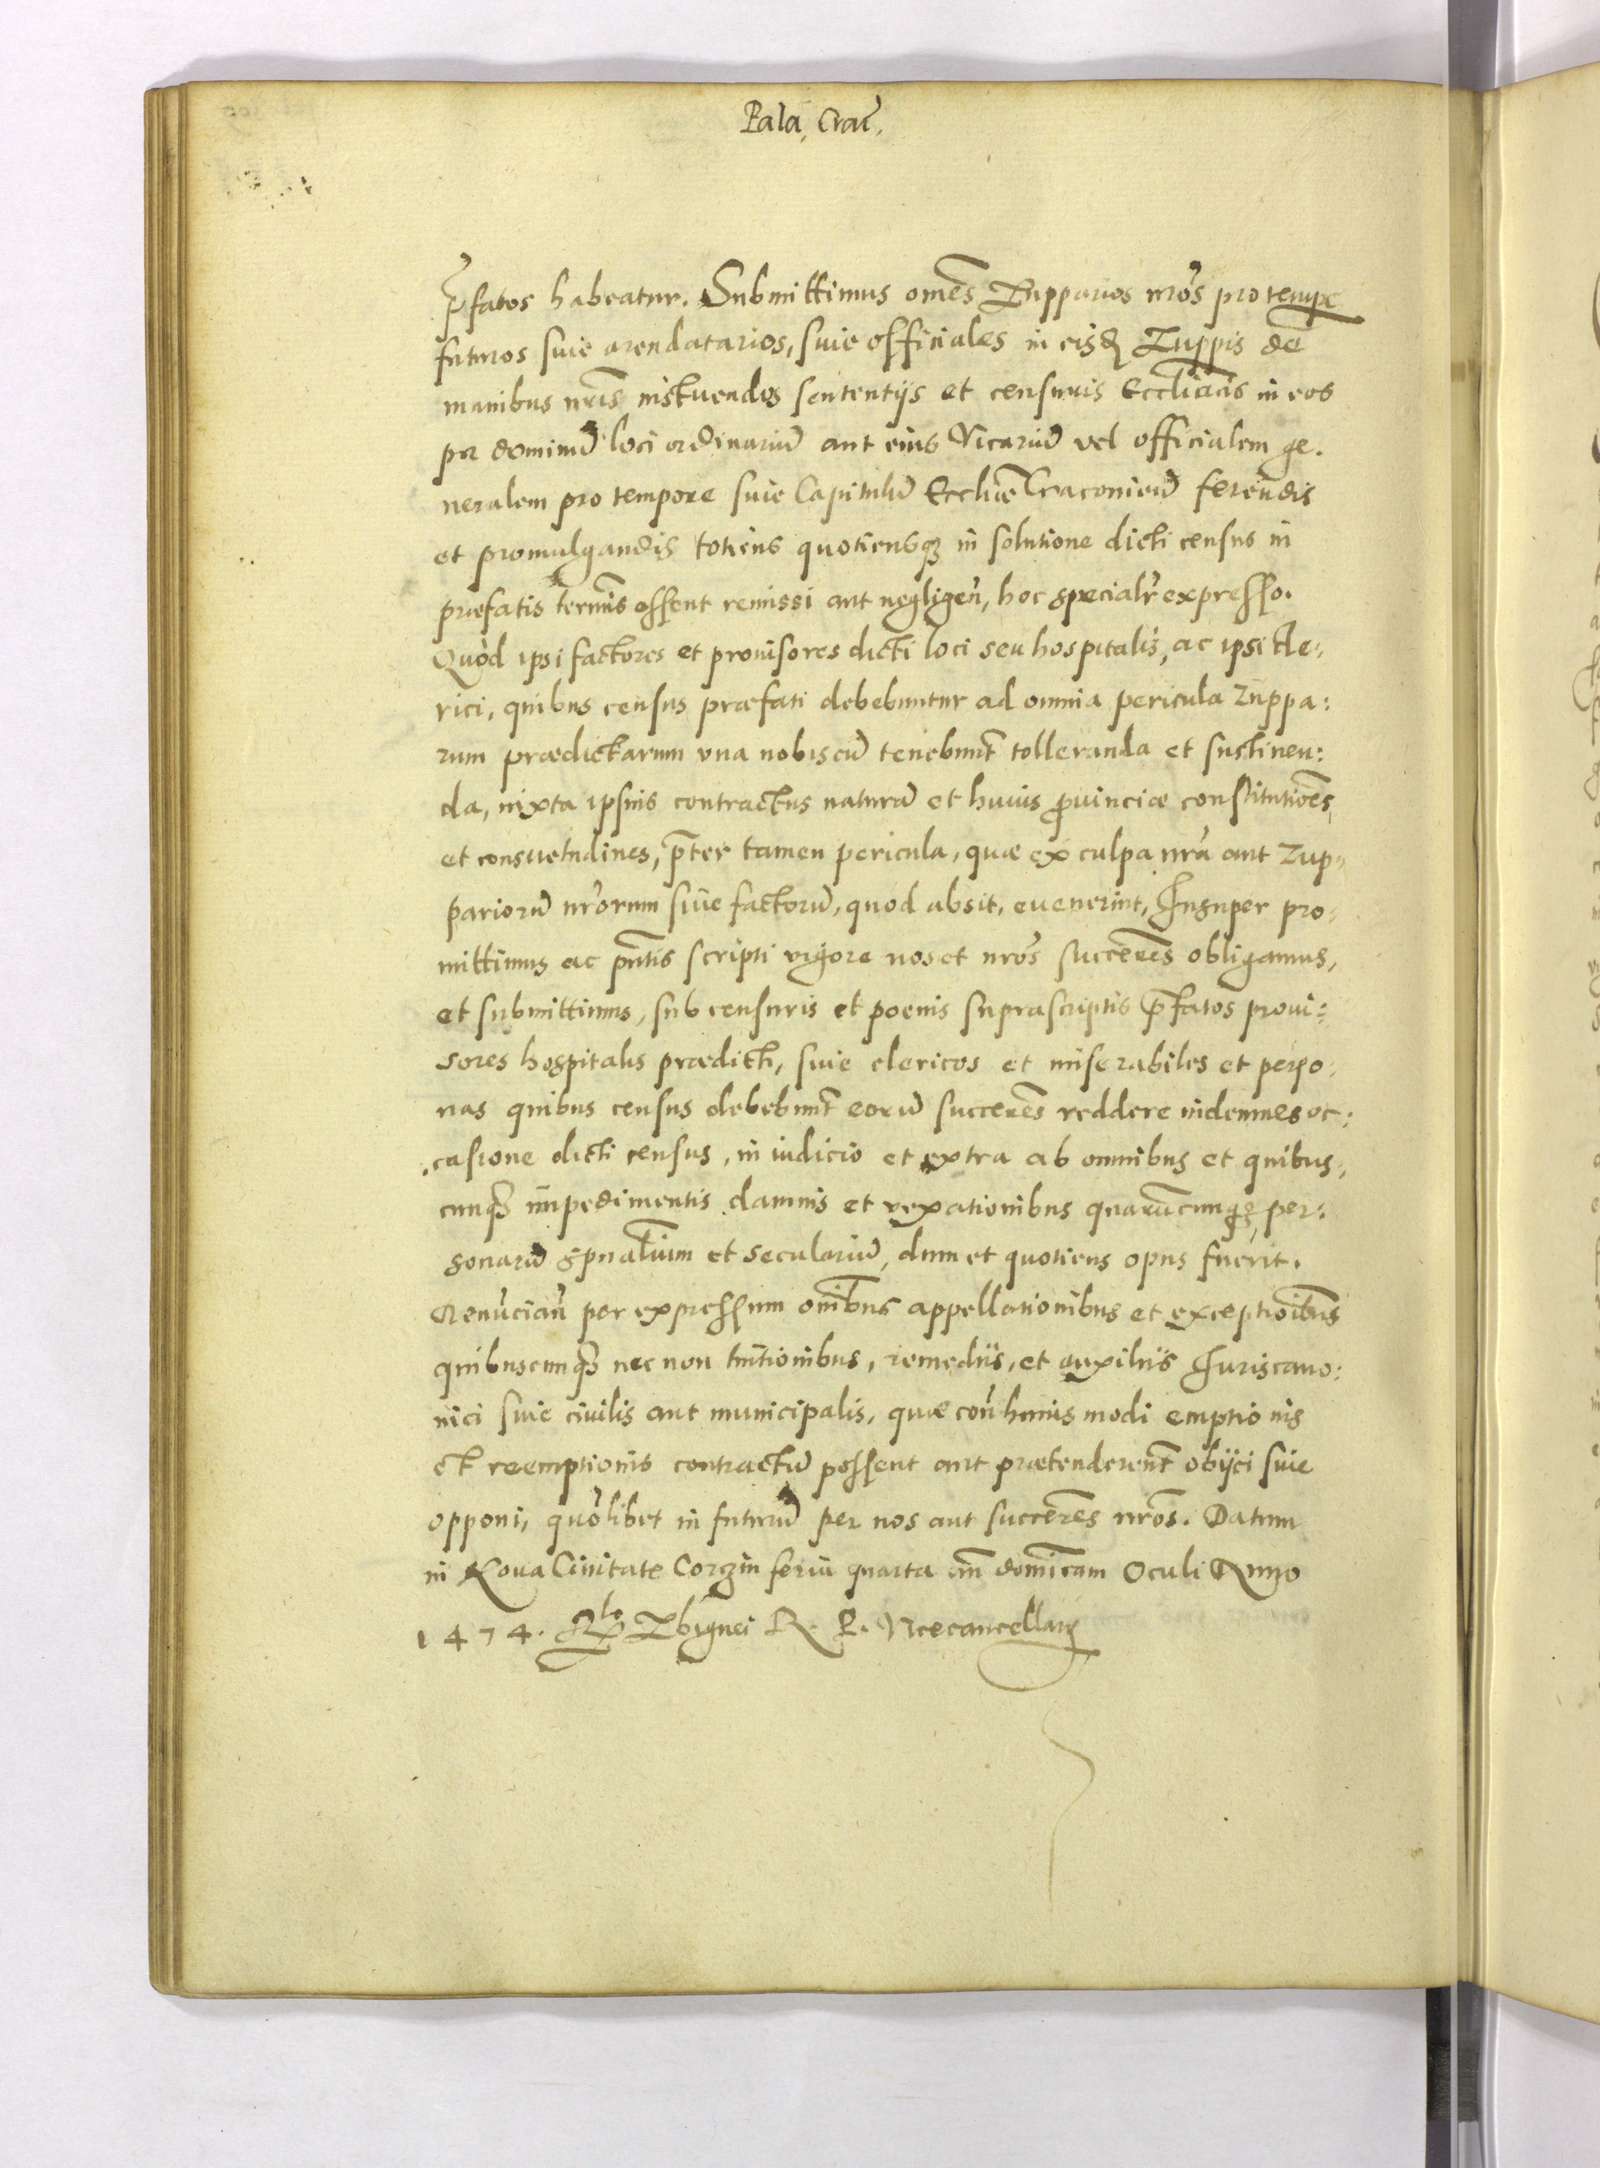 Pala. Crac̃.
p̃fatos habeatur. Submittimus om̃es Zupparios nr̃os pro temp̱e
futuros siue arendatarios, siue officiales in eisdẽ Zuppis de
manibus nr̃is instuendos sententijs et censuris Eccl̃iacis in eos
per dominũ loci ordinariũ aut eius Vicariũ vel officialem ge.
neralem pro tempore siue Capitulũ Eccl̃iae Cracouien̄ ferendis
et promulgandis totiens quotiensq̃ in solutione dicti census in
praefatis term̃is essent remissi aut negligen̄, hoc specialr̃ expresso.
Quòd ipsi factores et prouisores dicti loci seu hospitalis, ac ipsi Cle:
rici, quibus census praefati debebuntur ad omnia pericula Zuppa:
rum praedictarum vna nobiscũ tenebunt̃ tolleranda et sustinen:
da, iuxta ipsius contractus naturã et huius ꝓuinciae constitutiões
et consuetudines, p̃ter tamen pericula, quae ex culpa nr̃a aut Zup:
pariorũ nr̃orum siue factorũ, quod absit, euenerint, Insuper pro:
mittimus ac pñtis scripti vigore nos et nr̃os succẽres obligamus,
et submittimus, sub censuris et poenis suprascriptis p̃fatos proui:
sores hospitalis praedicti, siue clericos et miserabiles et perso:
nas quibus census debebunt̃ eorũ succẽres reddere indemnes oc:
casione dicti census, in iudicio et extra ab omnibus et quibus:
cunq̃ impedimentis damnis et vexationibus quarũcunq̃ per:
sonarũ spũalium et seculariũ, dum et quotiens opus fuerit.
Renũcian̄ per expressum om̃ibus appellationibus et exceptiõibus
quibuscunq̃ nec non tuitionibus, remediis, et auxiliis Iuris cano:
nici siue ciuilis aut municipalis, quae con̄ huius modi emptionis
et reemptionis contractũ possent aut praetenderent̃ obijci siue
opponi, quõlibet in futurũ per nos aut succẽres nr̃os. Datum
in Noua Ciuitate Corczin feria quarta an̄ domĩcam Oculi Anno
1474. Rlo Zbignei R. P. Vicecancellarij